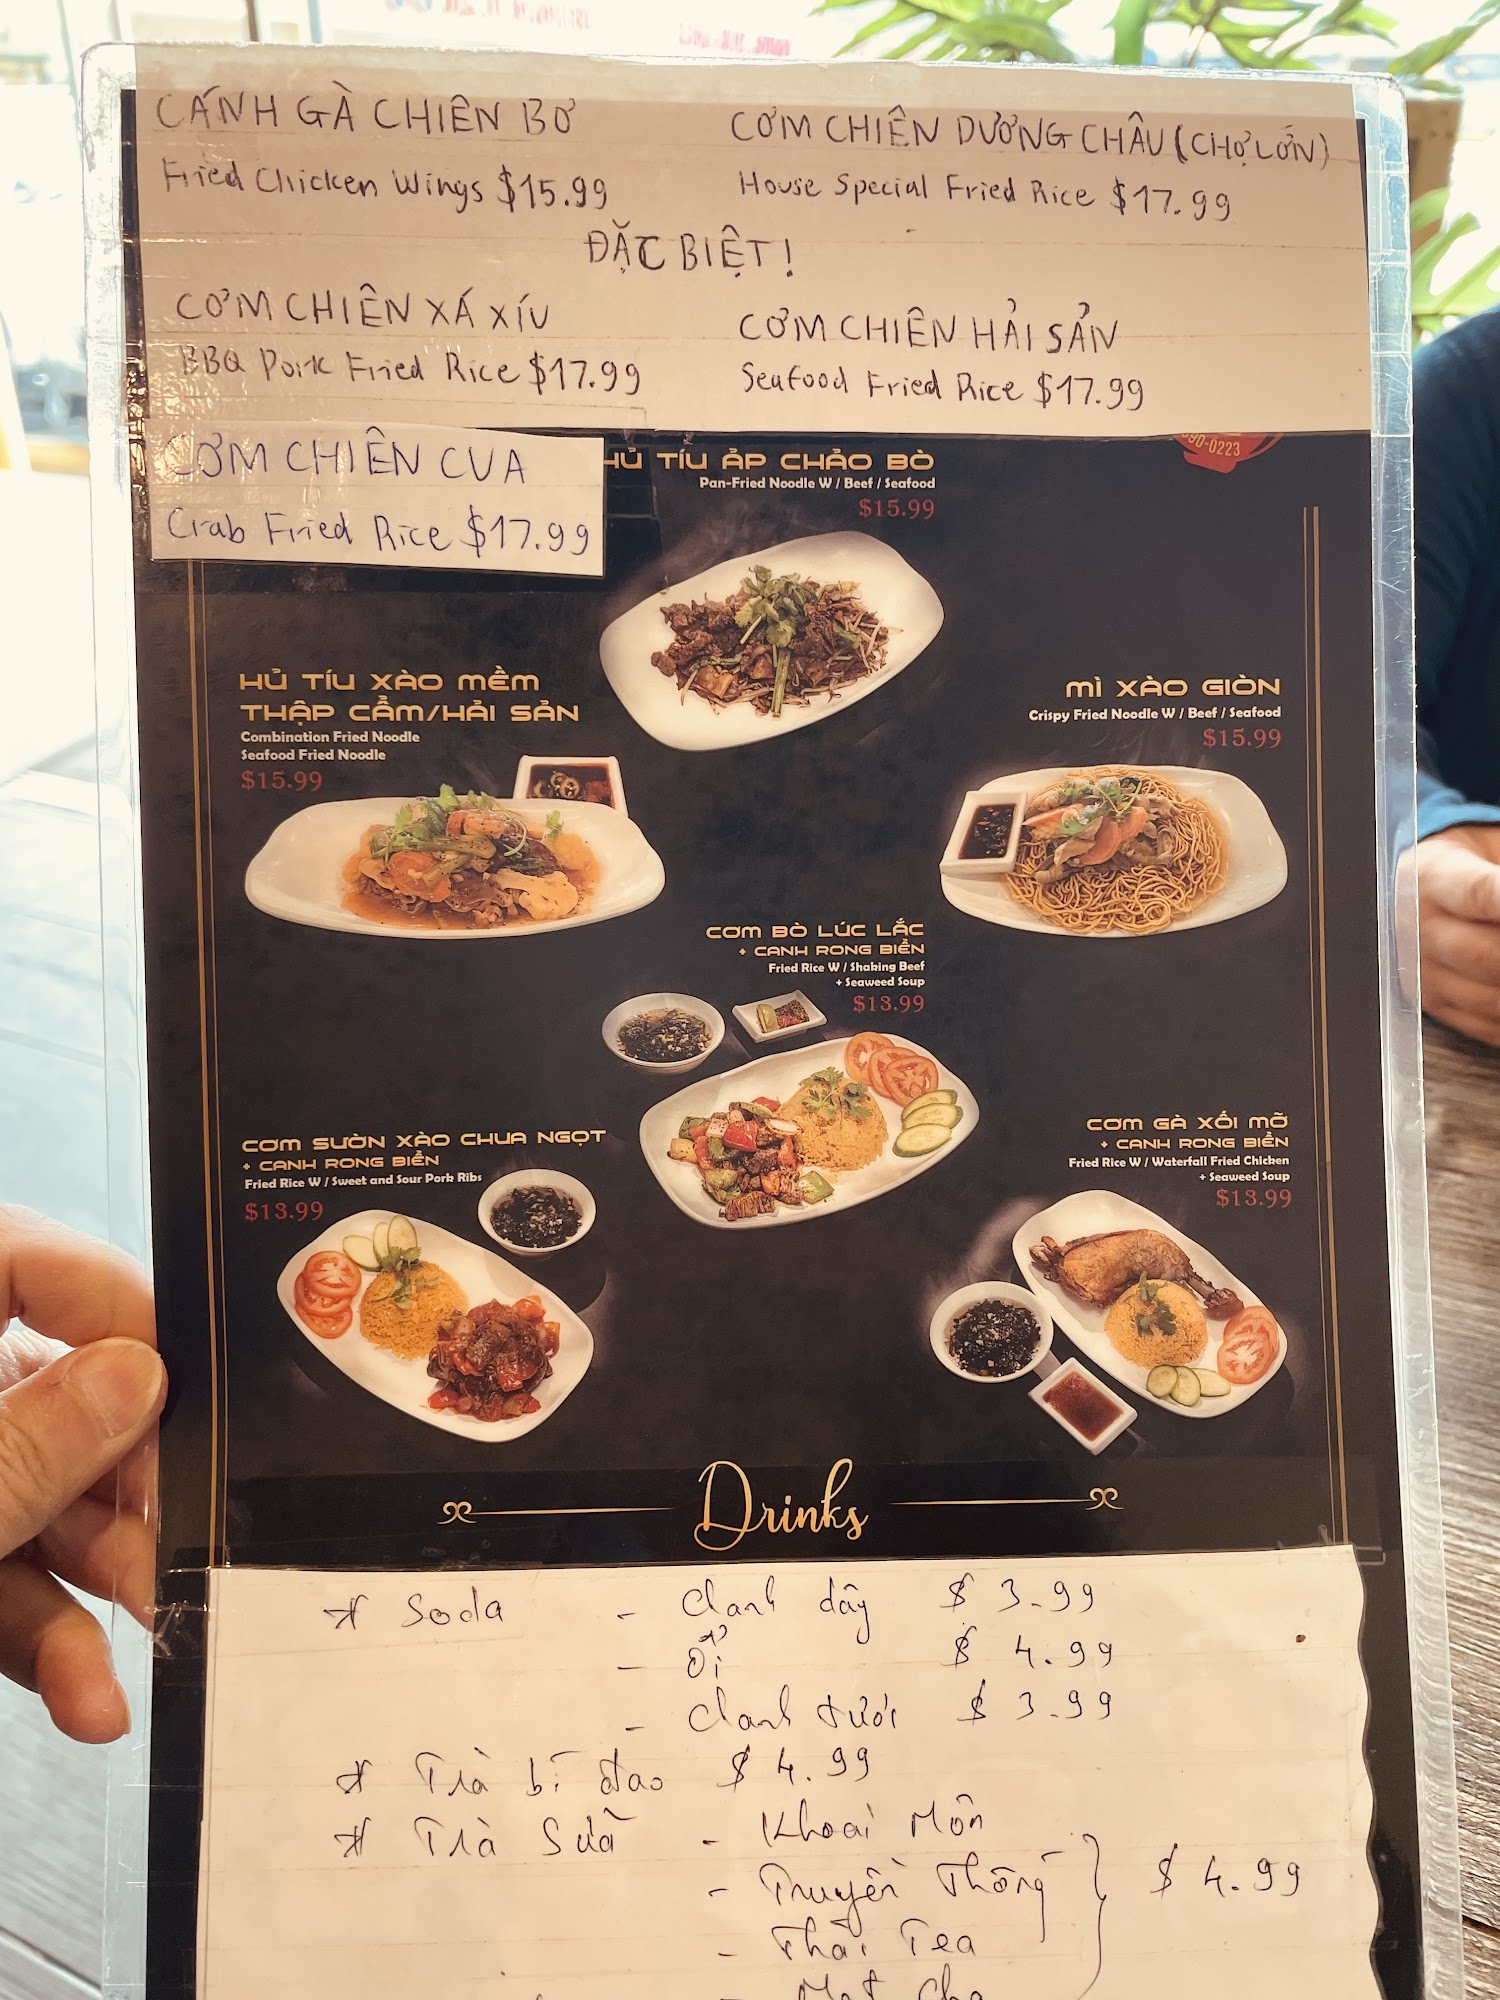 CÁNH GÀ CHIÊN BƠ
Fried Chicken Wings $15.99
CƠM CHIÊN DƯƠNG CHÂU (CHỢ LỚN)
House Special Fried Rice $17.99
ĐẶC BIỆT!
CƠM CHIÊN XÁ XÍU
BBQ Pork Fried Rice $17.99
CƠM CHIÊN HẢI SẢN
Seafood Fried Rice $17.99
CƠM CHIÊN CUA
Crab Fried Rice $17.99
90-0223
HỦ TÍU ÁP CHẢO BÒ
Pan-Fried Noodle W / Beef / Seafood
$15.99
HỦ TÍU XÀO MỀM
THẬP CẨM/HẢI SẢN
Combination Fried Noodle
Seafood Fried Noodle
$15.99
MÌ XÀO GIÒN
Crispy Fried Noodle W / Beef / Seafood
$15.99
CƠM BÒ LÚC LẮC
+ CANH RONG BIỂN
Fried Rice W / Shaking Beef
+ Seaweed Soup
$13.99
CƠM SƯỜN XÀO CHUA NGỌT
+ CANH RONG BIỂN
Fried Rice W / Sweet and Sour Pork Ribs
$13.99
CƠM GÀ XỐI MỠ
+ CANH RONG BIỂN
Fried Rice W / Waterfall Fried Chicken
+ Seaweed Soup
$13.99
Drinks
* Soda - Chanh dây $ 3.99
- Ổi $ 4.99
- Chanh tươi $ 3.99
* Trà bí đao $ 4.99
* Trà Sữa - Khoai Môn
- Truyền Thống } $ 4.99
- Thái Tea